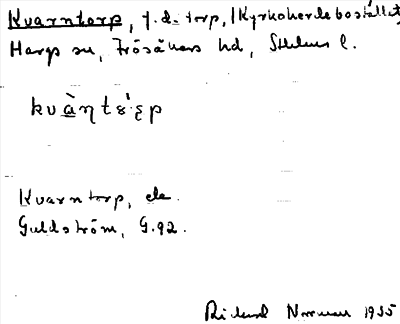 Kvarntorp, f.d. torp, (Kyrkoherdebostället,
Hargs sn, Frösåkers hd, Sthlms l.
kvàṇtɤ'ṛp
Kvarntorp, de.
Guldström, G.92.
Rickard Norrman 1935